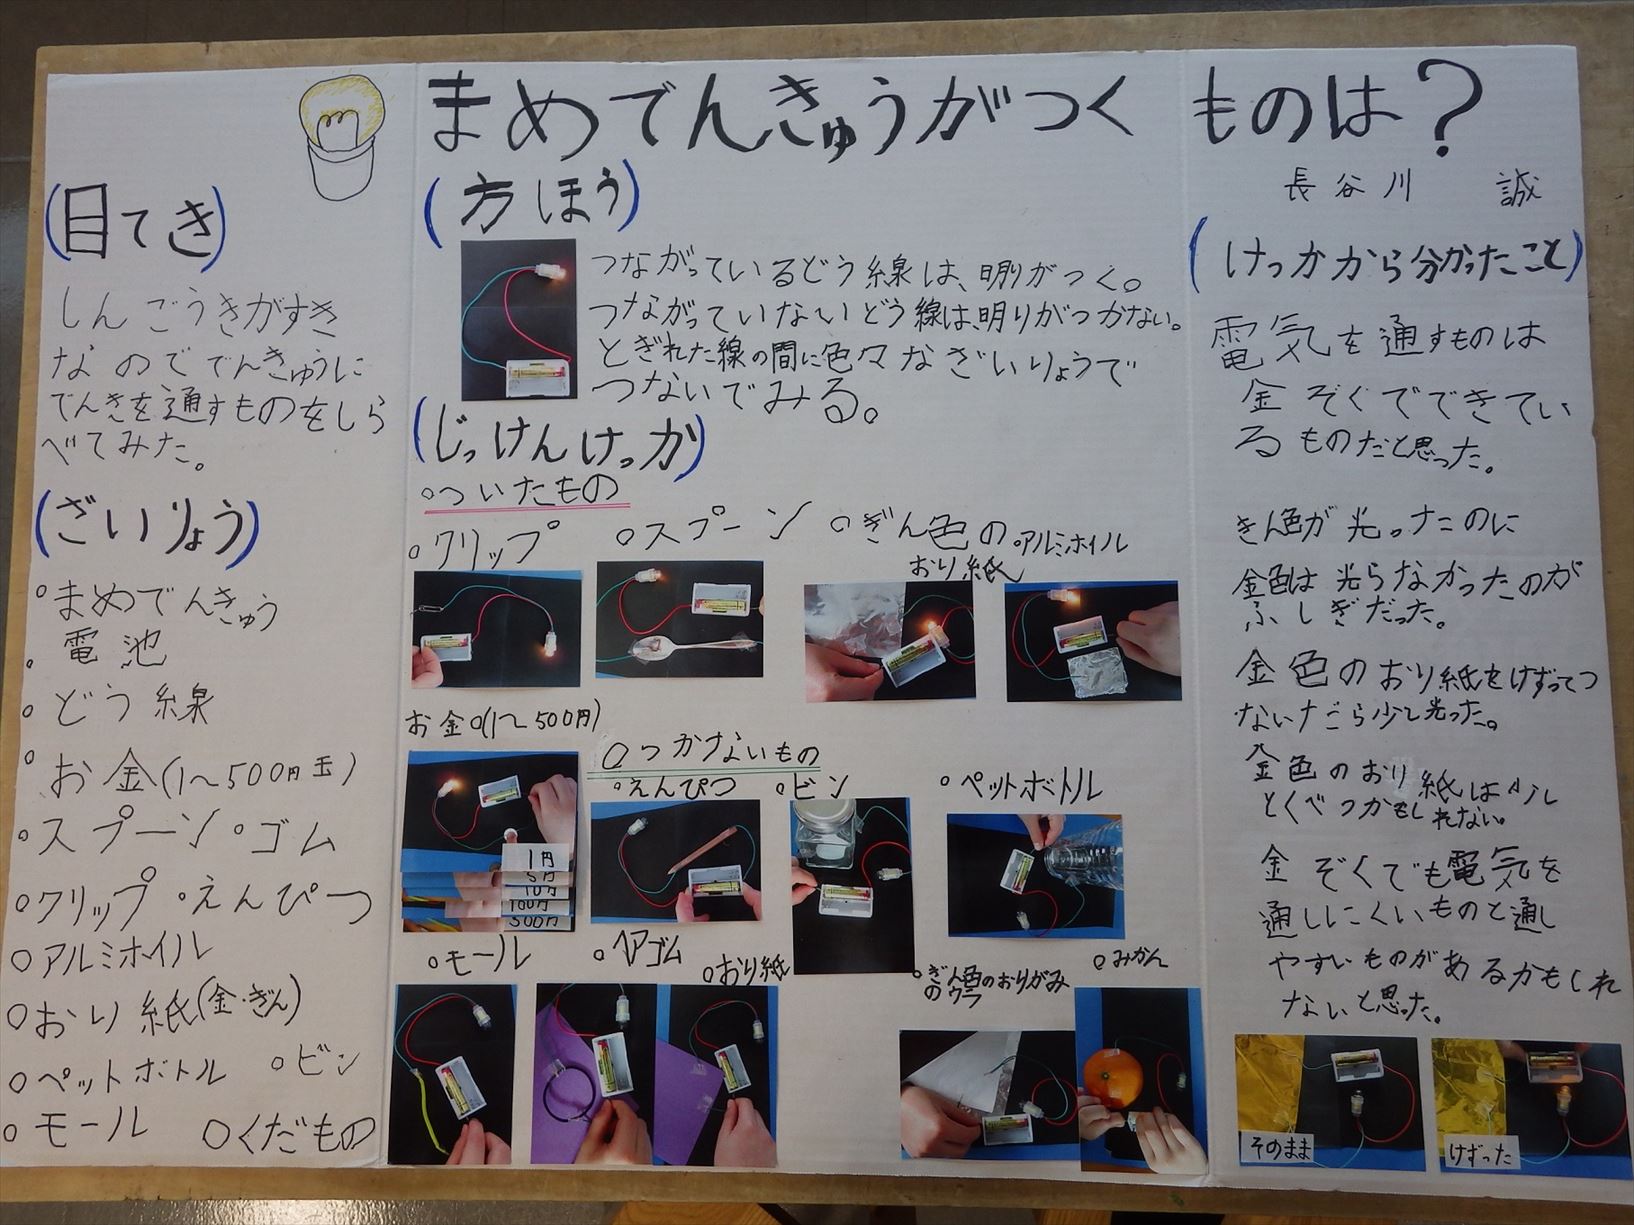 まめでんきゅうがつく ものは?
長谷川 誠
(目てき)
しんごうきがすき
なのででんきゅうに
でんきを通すものをしら
べてみた。
(ざいりょう)
○まめでんきゅう
○電池
○どう線
○お金(1〜500円玉)
○スプーン○ゴム
○クリップ ○えんぴつ
○アルミホイル
○おり紙(金・ぎん)
○ペットボトル ○ビン
○モール ○くだもの
(方ほう)
つながっているどう線は、明りがつく。
つながっていないどう線は、明りがつかない。
とぎれた線の間に色々なざいりょうで
つないでみる。
(じっけんけっか)
○ついたもの
○クリップ
○スプーン
○ぎん色の
おり紙
○アルミホイル
お金○(1〜500円)
1円
5円
10円
100円
500円
○つかないもの
○えんぴつ
○ビン
○ペットボトル
○モール
○ヘアゴム
○おり紙
○ぎん色のおりがみ
のウラ
○みかん
(けっかから分かったこと)
電気を通すものは
金ぞくでできてい
るものだと思った。
きん色が光ったのに
金色は光らなかったのが
ふしぎだった。
金色のおり紙をけずってつ
ないだら少し光った。
金色のおり紙は
とくべつかもしれない。
金ぞくでも電気を
通しにくいものと通し
やすいものがあるかもしれ
ないと思った。
そのまま
けずった